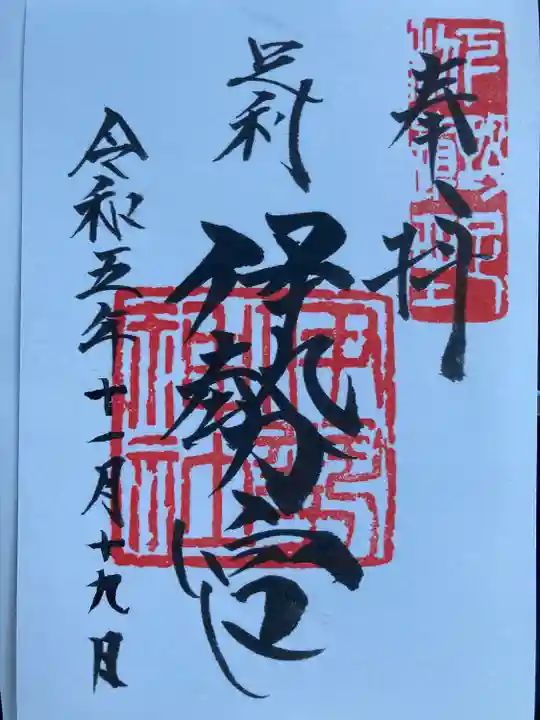 奉拝
足利
伊勢宮
令和五年十一月十九日
伊勢
神社